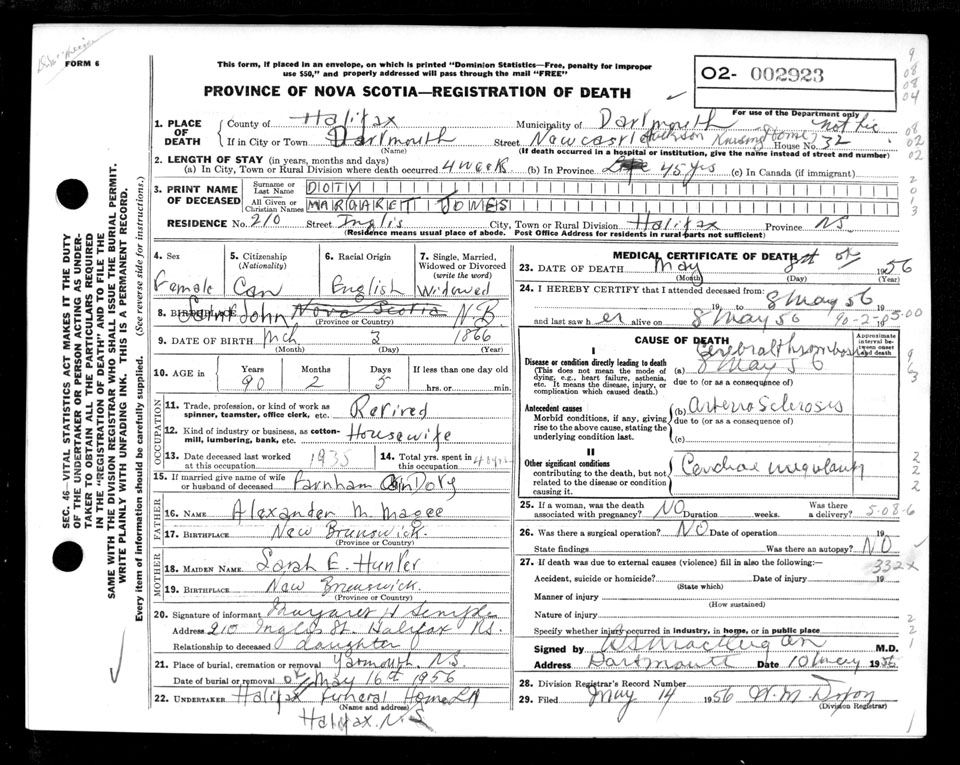 FORM 6
This form, if placed in an envelope, on which is printed "Dominion Statistics—Free, penalty for improper
use $50," and properly addressed will pass through the mail "FREE"
PROVINCE OF NOVA SCOTIA—REGISTRATION OF DEATH
02- 002923
For use of the Department only
1. PLACE OF DEATH
County of Halifax Municipality of Dartmouth
If in City or Town Dartmouth Street Newcastle Nursing Home House No. 32
(Name) (If death occurred in a hospital or institution, give the name instead of street and number)
2. LENGTH OF STAY (in years, months and days)
(a) In City, Town or Rural Division where death occurred 4 week (b) In Province 45 yrs (c) In Canada (if immigrant)
3. PRINT NAME OF DECEASED
Surname or Last Name DOTY
All Given or Christian Names MARGARET JONES
RESIDENCE No. 210 Street Inglis City, Town or Rural Division Halifax Province NS
(Residence means usual place of abode. Post Office Address for residents in rural parts not sufficient)
4. Sex
Female
5. Citizenship
(Nationality)
Can
6. Racial Origin
English
7. Single, Married,
Widowed or Divorced
(write the word)
Widowed
8. BIRTHPLACE Saint John Nova Scotia N.B.
(Province or Country)
9. DATE OF BIRTH Mch 3 1866
(Month) (Day) (Year)
10. AGE in Years Months Days If less than one day old
90 2 5 hrs. or min.
OCCUPATION
11. Trade, profession, or kind of work as
spinner, teamster, office clerk, etc. Retired
12. Kind of industry or business, as cotton-
mill, lumbering, bank, etc. Housewife
13. Date deceased last worked
at this occupation 1935
14. Total yrs. spent in
this occupation 40 yrs
15. If married give name of wife
or husband of deceased Farnham Doty
FATHER
16. NAME Alexander M. Magee
17. BIRTHPLACE New Brunswick
(Province or Country)
MOTHER
18. MAIDEN NAME Sarah E. Hunter
19. BIRTHPLACE New Brunswick
(Province or Country)
20. Signature of informant Margaret H
Address 210 Inglis St. Halifax NS.
Relationship to deceased daughter
21. Place of burial, cremation or removal Yarmouth, NS.
Date of burial or removal May 16th 1956
22. UNDERTAKER Halifax Funeral Home
(Name and address)
Halifax N.S
MEDICAL CERTIFICATE OF DEATH
23. DATE OF DEATH May 8 1956
24. I HEREBY CERTIFY that I attended deceased from:
19 to 8 May 56
and last saw her alive on 8 May 56 90-2-5
CAUSE OF DEATH
Approximate interval between onset and death
I
Disease or condition directly leading to death
(This does not mean the mode of
dying, e.g., heart failure, asthenia,
etc. It means the disease, injury, or
complication which caused death.)
(a) Cerebral thrombosis
8 May 56
due to (or as a consequence of)
Antecedent causes
Morbid conditions, if any, giving
rise to the above cause, stating the
underlying condition last.
(b) Arterio Sclerosis
due to (or as a consequence of)
(c)
II
Other significant conditions
contributing to the death, but not
related to the disease or condition
causing it.
25. If a woman, was the death
associated with pregnancy? NO Duration weeks. Was there
a delivery? 5-08-6
26. Was there a surgical operation? NO Date of operation 19
State findings Was there an autopsy? NO
27. If death was due to external causes (violence) fill in also the following:—
332x
Accident, suicide or homicide? Date of injury 19
(State which)
Manner of injury
(How sustained)
Nature of injury
Specify whether injury occurred in industry, in home, or in public place
Signed by M.D.
Address Dartmouth Date 10 May 1956
28. Division Registrar's Record Number
29. Filed May 14 1956 W.M.
(Division Registrar)
SEC. 46—VITAL STATISTICS ACT MAKES IT THE DUTY
OF THE UNDERTAKER OR PERSON ACTING AS UNDER-
TAKER TO OBTAIN ALL THE PARTICULARS REQUIRED
IN THE "REGISTRATION OF DEATH" AND TO FILE THE
SAME WITH THE DIVISION REGISTRAR WHO SHALL ISSUE THE BURIAL PERMIT.
WRITE PLAINLY WITH UNFADING INK. THIS IS A PERMANENT RECORD.
Every item of information should be carefully supplied. (See reverse side for instructions.)